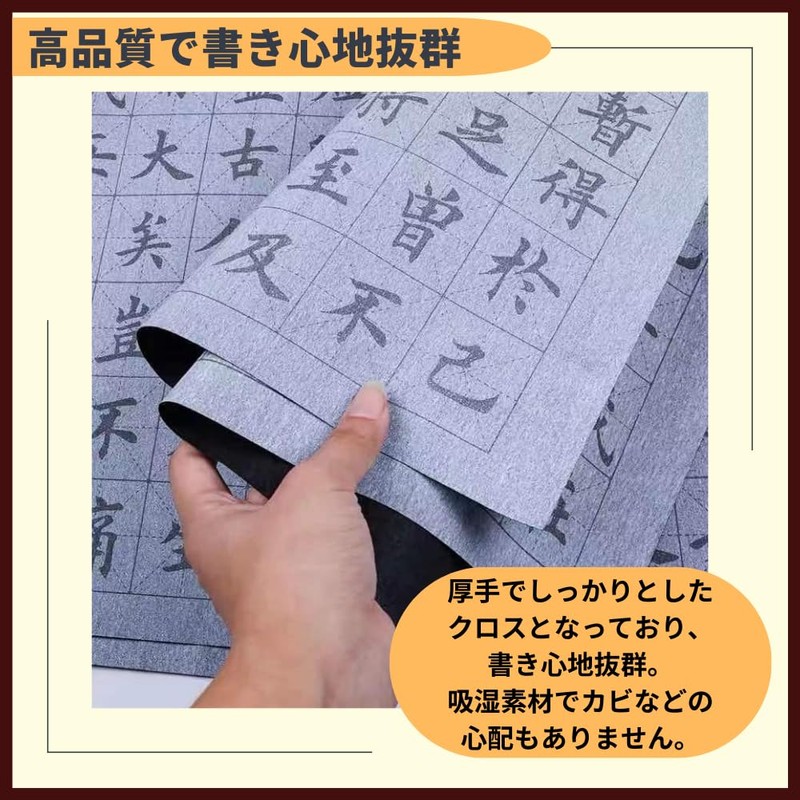 高品質で書き心地抜群
暫
得
於
己
足
曽
不
所
至
及
大
古
矣
豈
不
痛
厚手でしっかりとした
クロスとなっており、
書き心地抜群。
吸湿素材でカビなどの
心配もありません。